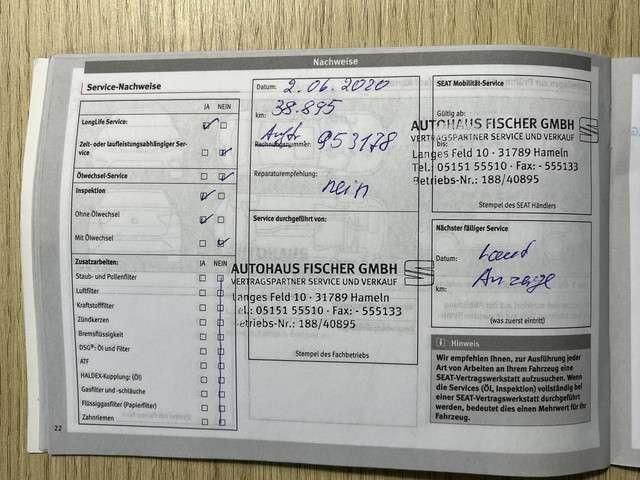 Nachweise
Service-Nachweise
JA NEIN
LongLife Service:
Zeit- oder laufleistungsabhängiger Ser-
vice
Ölwechsel-Service
Inspektion
Ohne Ölwechsel
Mit Ölwechsel
Zusatzarbeiten: JA NEIN
Staub- und Pollenfilter
Luftfilter
Kraftstofffilter
Zündkerzen
Bremsflüssigkeit
DSG®: Öl und Filter
ATF
HALDEX-Kupplung: (Öl)
Gasfilter und -schläuche
Flüssiggasfilter (Papierfilter)
Zahnriemen
22
Datum: 2.06.2020
km: 38.895
Auftr
Rechnungsnummer: 953178
Reparaturempfehlung:
nein
Service durchgeführt von:
AUTOHAUS FISCHER GMBH
VERTRAGSPARTNER SERVICE UND VERKAUF
Langes Feld 10 · 31789 Hameln
Tel.: 05151 55510 · Fax: - 555133
Betriebs-Nr.: 188/40895
Stempel des Fachbetriebs
SEAT Mobilität-Service
Gültig ab:
AUTOHAUS FISCHER GMBH
VERTRAGSPARTNER SERVICE UND VERKAUF
bis:
Langes Feld 10 · 31789 Hameln
Tel.: 05151 55510 · Fax: - 555133
Betriebs-Nr.: 188/40895
Stempel des SEAT Händlers
Nächster fälliger Service
Datum: laut
km: Anzeige
(was zuerst eintritt)
i Hinweis
Wir empfehlen Ihnen, zur Ausführung jeder
Art von Arbeiten an Ihrem Fahrzeug eine
SEAT-Vertragswerkstatt aufzusuchen. Wenn
die Services (Öl, Inspektion) vollständig bei
einer SEAT-Vertragswerkstatt durchgeführt
werden, bedeutet dies einen Mehrwert für Ihr
Fahrzeug.